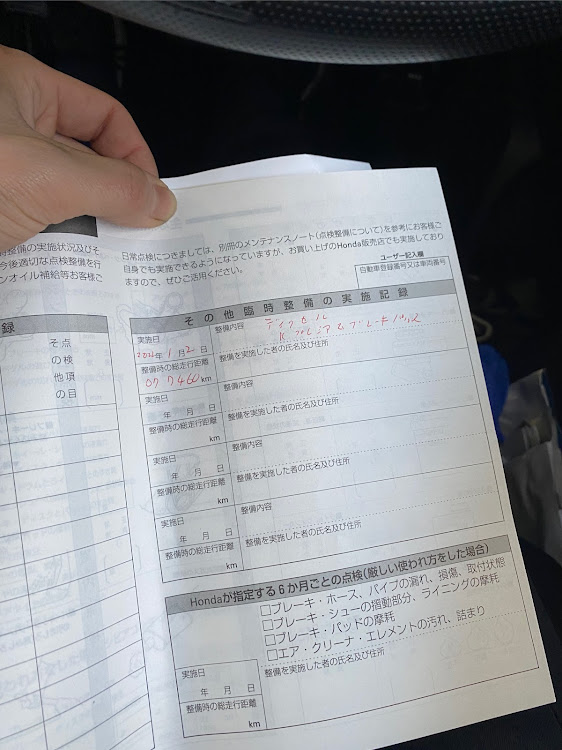 整備の実施状況及びそ
今後適切な点検整備を行
ンオイル補給等お客様ご
録
そ点
の検
他項
の目
日常点検につきましては、別冊のメンテナンスノート(点検整備について)を参考にお客様ご
自身でも実施できるようになっていますが、お買い上げのHonda販売店でも実施しており
ますので、ぜひご活用ください。
ユーザー記入欄
自動車登録番号又は車両番号
その他臨時整備の実施記録
実施日
整備内容
ディクセル
年 1月2日
プレミアムブレーキパッド
整備時の総走行距離
整備を実施した者の氏名及び住所
km
実施日
整備内容
年 月 日
整備時の総走行距離
整備を実施した者の氏名及び住所
km
実施日
整備内容
年 月 日
整備時の総走行距離
整備を実施した者の氏名及び住所
km
実施日
整備内容
年 月 日
整備時の総走行距離
整備を実施した者の氏名及び住所
km
Hondaが指定する6か月ごとの点検(厳しい使われ方をした場合)
□ブレーキ・ホース、パイプの漏れ、損傷、取付状態
□ブレーキ・シューの摺動部分、ライニングの摩耗
□ブレーキ・パッドの摩耗
□エア・クリーナ・エレメントの汚れ、詰まり
実施日
整備を実施した者の氏名及び住所
年 月 日
整備時の総走行距離
km